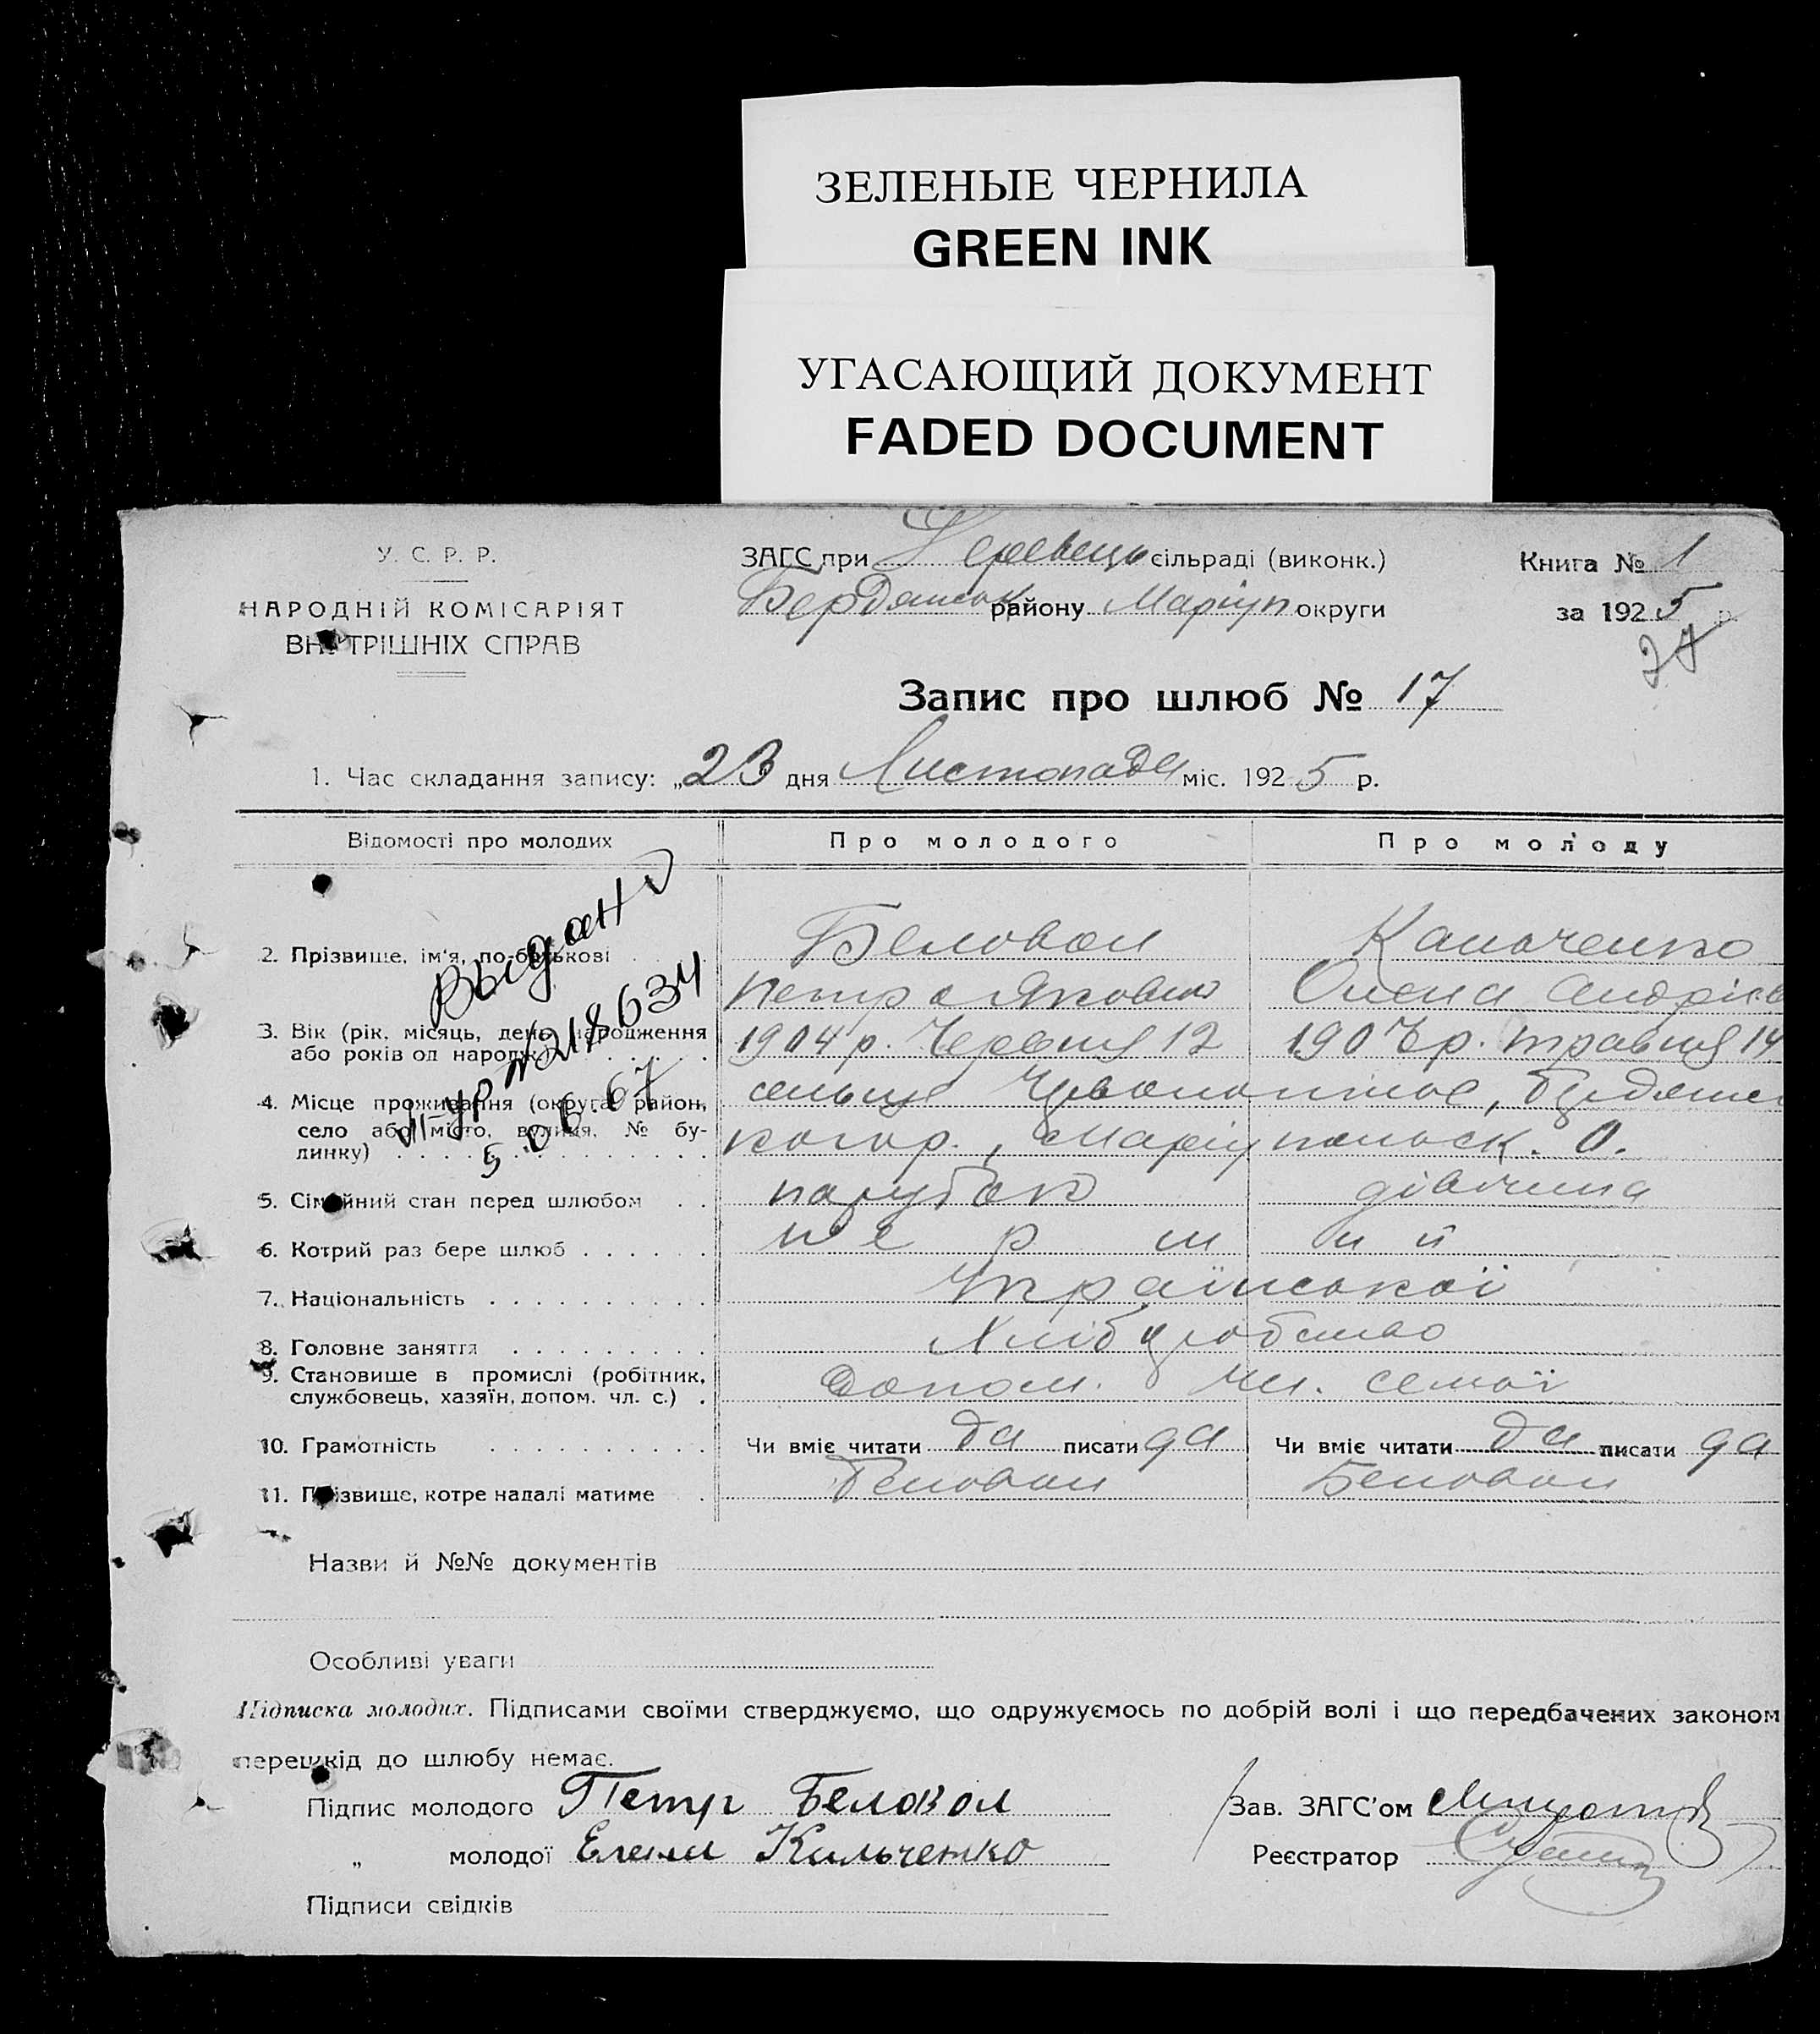 ЗЕЛЕНЫЕ ЧЕРНИЛА
GREEN INK
УГАСАЮЩИЙ ДОКУМЕНТ
FADED DOCUMENT
У. С. Р. Р.
НАРОДНІЙ КОМІСАРІЯТ
ВНУТРІШНІХ СПРАВ
ЗАГС при сільраді (виконк.)
Бердянськ району Маріуп округи
Книга № 1
за 1925 р.
27
Запис про шлюб № 17
1. Час складання запису: „23 дня Листопада міс. 1925 р.
Відомості про молодих Про молодого Про молоду
Выдано
II-УР №218634
5.06.67
2. Прізвище, ім'я, по-батькові Беловол Кальченко
Петро Якович Олена Андріїв
3. Вік (рік, місяць, день народження
або років од народж.) 1904 р. Червня 12 1907 р. травня 14
4. Місце проживання (округа, район,
село або місто, вулиця, № бу-
динку)
селище , Бердянсь
кого р., Маріупольськ. О.
5. Сімейний стан перед шлюбом парубок дівчина
6. Котрий раз бере шлюб перший
7. Національність Української
8. Головне заняття Хліборобство
9. Становище в промислі (робітник,
службовець, хазяїн, допом. чл. с.) Допом. чл. семьї
10. Грамотність Чи вміє читати да писати да Чи вміє читати да писати да
11. Прізвище, котре надалі матиме Беловол Беловол
Назви й №№ документів
Особливі уваги
Підписка молодих. Підписами своїми стверджуємо, що одружуємось по добрій волі і що передбачених законом
перешкід до шлюбу немає.
Підпис молодого Петр Беловол
Зав. ЗАГС'ом
„ молодої Елена Кальченко
Реєстратор
Підписи свідків